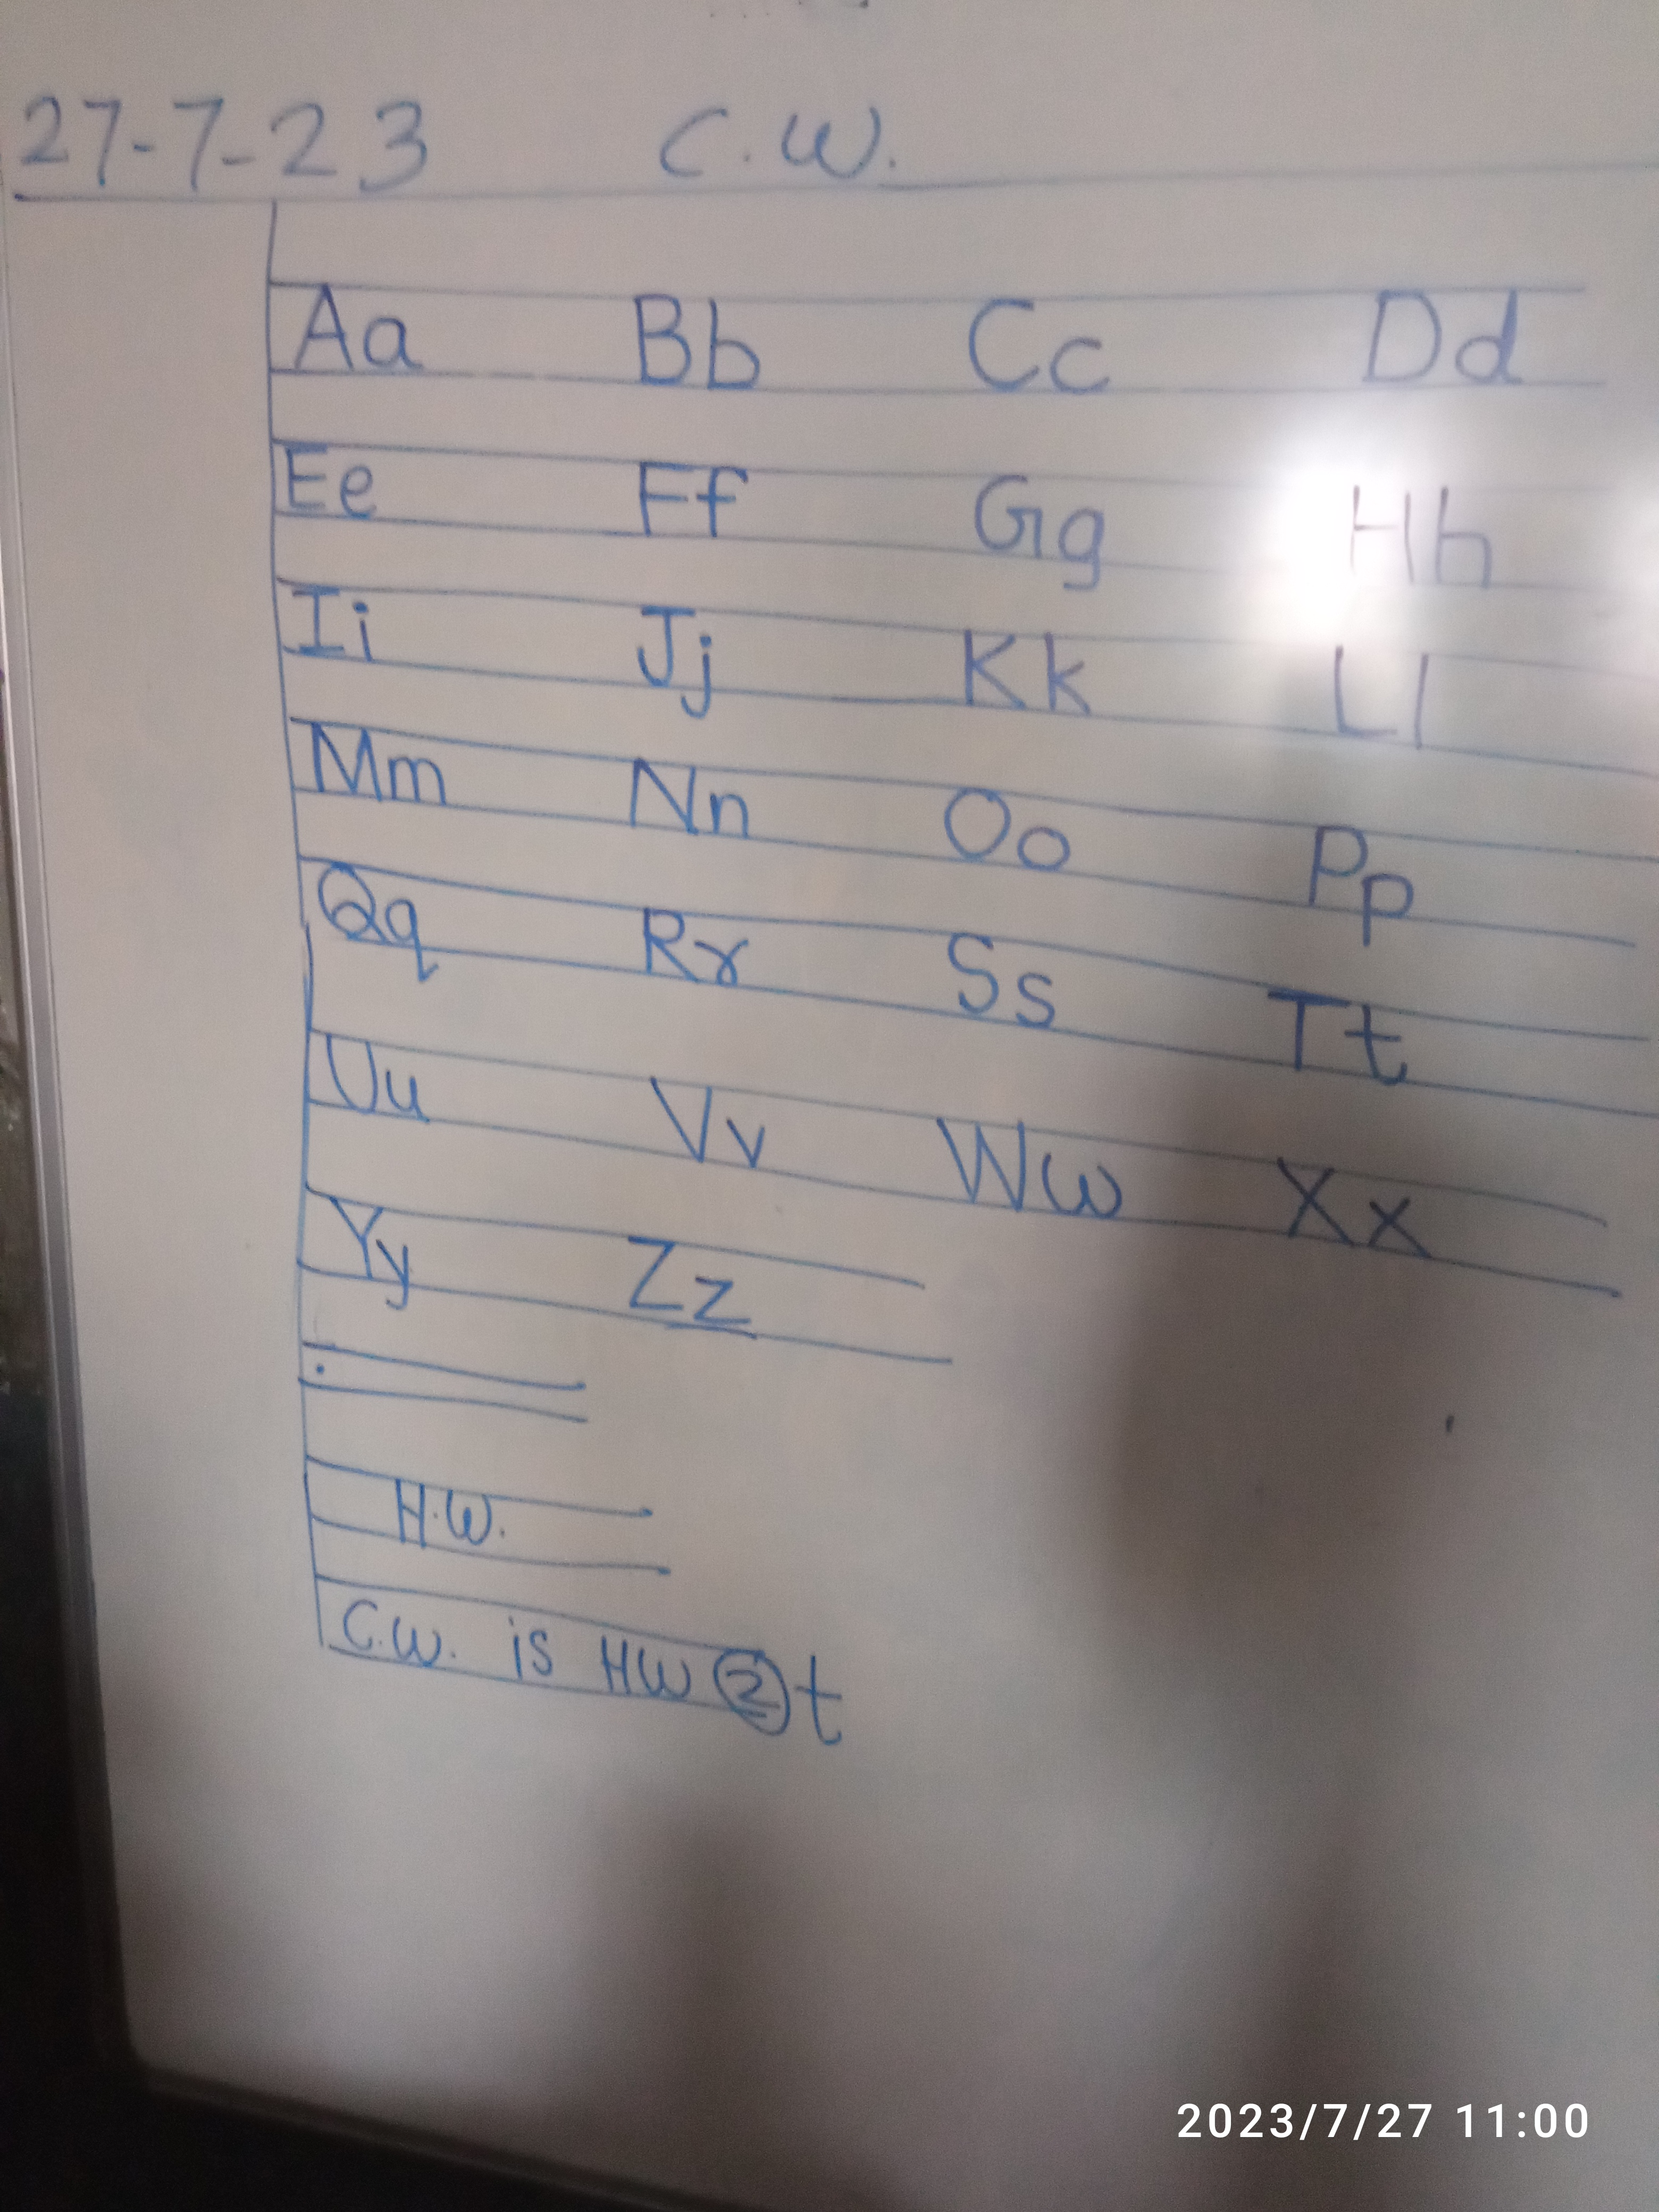 27-7-23 C.W.
Aa Bb Cc Dd
Ee Ff Gg Hh
Ii Jj Kk Ll
Mm Nn Oo Pp
Qq Rr Ss Tt
Uu Vv Ww Xx
Yy Zz
H.W.
C.W. is HW ② t
2023/7/27 11:00